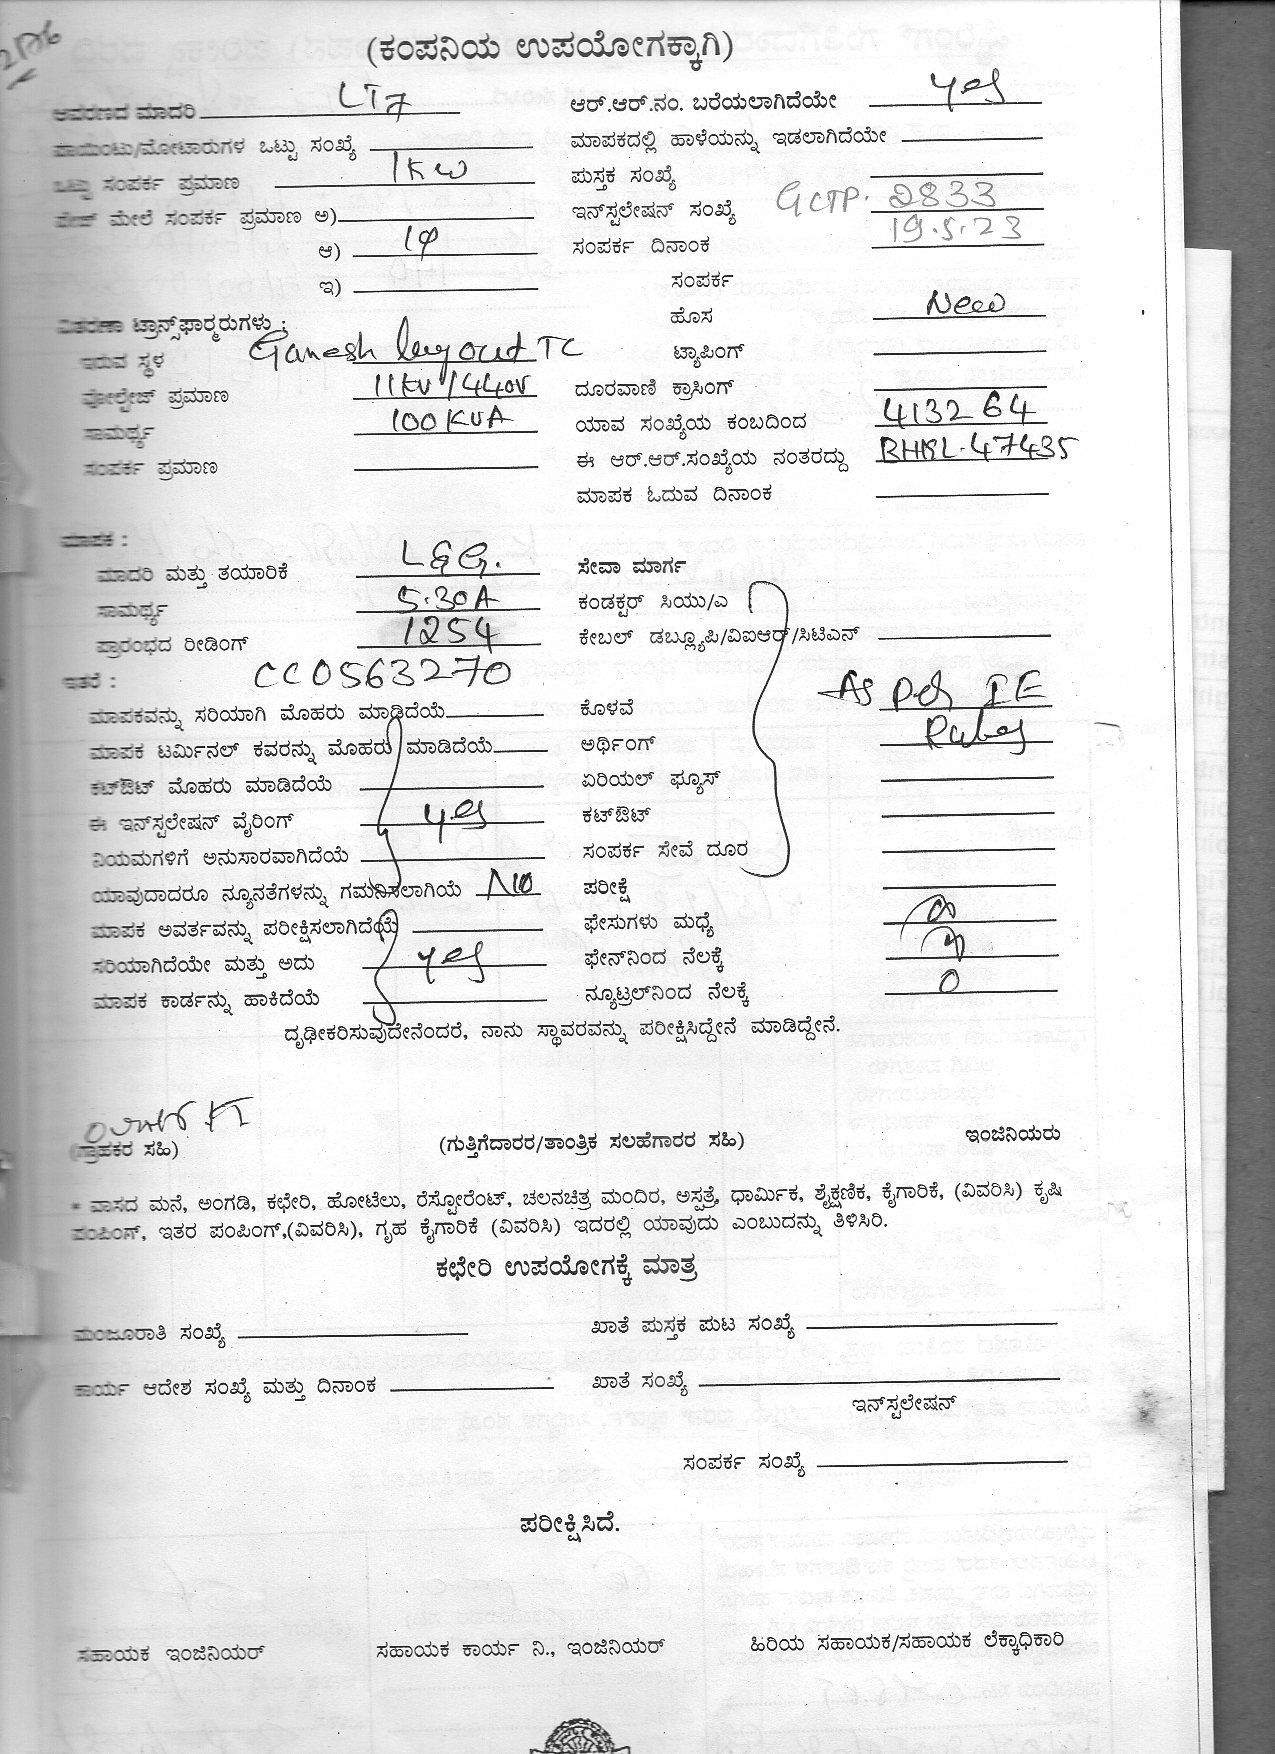 (ಕಂಪನಿಯ ಉಪಯೋಗಕ್ಕಾಗಿ)
ಆವರಣದ ಮಾದರಿ LT7 ಆರ್.ಆರ್.ನಂ. ಬರೆಯಲಾಗಿದೆಯೇ yes
ಪಾಯಿಂಟು/ಮೋಟಾರುಗಳ ಒಟ್ಟು ಸಂಖ್ಯೆ ಮಾಪಕದಲ್ಲಿ ಹಾಳೆಯನ್ನು ಇಡಲಾಗಿದೆಯೇ
ಒಟ್ಟು ಸಂಪರ್ಕ ಪ್ರಮಾಣ 1KW ಪುಸ್ತಕ ಸಂಖ್ಯೆ
ಪೇಜ್ ಮೇಲೆ ಸಂಪರ್ಕ ಪ್ರಮಾಣ ಅ) ಇನ್‌ಸ್ಟಲೇಷನ್ ಸಂಖ್ಯೆ GCTP. 2833
ಆ) 1φ ಸಂಪರ್ಕ ದಿನಾಂಕ 19.5.23
ಇ) ಸಂಪರ್ಕ
ಹೊಸ New
ವಿತರಣಾ ಟ್ರಾನ್ಸ್‌ಫಾರ್ಮರುಗಳು :
ಇರುವ ಸ್ಥಳ Ganesh layout TC ಟ್ಯಾಪಿಂಗ್
ವೋಲ್ಟೇಜ್ ಪ್ರಮಾಣ 11KV/440V ದೂರವಾಣಿ ಕ್ರಾಸಿಂಗ್
ಸಾಮರ್ಥ್ಯ 100KVA ಯಾವ ಸಂಖ್ಯೆಯ ಕಂಬದಿಂದ 413264
ಸಂಪರ್ಕ ಪ್ರಮಾಣ ಈ ಆರ್.ಆರ್.ಸಂಖ್ಯೆಯ ನಂತರದ್ದು 47435
ಮಾಪಕ ಓದುವ ದಿನಾಂಕ
ಮಾಪಕ :
ಮಾದರಿ ಮತ್ತು ತಯಾರಿಕೆ L&G. ಸೇವಾ ಮಾರ್ಗ
ಸಾಮರ್ಥ್ಯ 5.30A ಕಂಡಕ್ಟರ್ ಸಿಯು/ಎ
ಪ್ರಾರಂಭದ ರೀಡಿಂಗ್ 1254 ಕೇಬಲ್ ಡಬ್ಲ್ಯೂಪಿ/ವಿಐಆರ್/ಸಿಟಿಎನ್
ಇತರೆ : CC0563270
ಮಾಪಕವನ್ನು ಸರಿಯಾಗಿ ಮೊಹರು ಮಾಡಿದೆಯೆ ಕೊಳವೆ As per IE
ಮಾಪಕ ಟರ್ಮಿನಲ್ ಕವರನ್ನು ಮೊಹರು ಮಾಡಿದೆಯೆ ಅರ್ಥಿಂಗ್ Rules
ಕಟ್‌ಔಟ್ ಮೊಹರು ಮಾಡಿದೆಯೆ ಏರಿಯಲ್ ಫ್ಯೂಸ್
ಈ ಇನ್‌ಸ್ಟಲೇಷನ್ ವೈರಿಂಗ್ yes ಕಟ್‌ಔಟ್
ನಿಯಮಗಳಿಗೆ ಅನುಸಾರವಾಗಿದೆಯೆ ಸಂಪರ್ಕ ಸೇವೆ ದೂರ
ಯಾವುದಾದರೂ ನ್ಯೂನತೆಗಳನ್ನು ಗಮನಿಸಲಾಗಿಯೆ NO ಪರೀಕ್ಷೆ
ಮಾಪಕ ಅವರ್ತವನ್ನು ಪರೀಕ್ಷಿಸಲಾಗಿದೆಯೆ ಫೇಸುಗಳು ಮಧ್ಯೆ
ಸರಿಯಾಗಿದೆಯೇ ಮತ್ತು ಅದು yes ಫೇನ್‌ನಿಂದ ನೆಲಕ್ಕೆ
ಮಾಪಕ ಕಾರ್ಡನ್ನು ಹಾಕಿದೆಯೆ ನ್ಯೂಟ್ರಲ್‌ನಿಂದ ನೆಲಕ್ಕೆ 0
ದೃಢೀಕರಿಸುವುದೇನೆಂದರೆ, ನಾನು ಸ್ಥಾವರವನ್ನು ಪರೀಕ್ಷಿಸಿದ್ದೇನೆ ಮಾಡಿದ್ದೇನೆ.
(ಗ್ರಾಹಕರ ಸಹಿ) (ಗುತ್ತಿಗೆದಾರರ/ತಾಂತ್ರಿಕ ಸಲಹೆಗಾರರ ಸಹಿ) ಇಂಜಿನಿಯರು
* ವಾಸದ ಮನೆ, ಅಂಗಡಿ, ಕಛೇರಿ, ಹೋಟೆಲು, ರೆಸ್ಟೋರೆಂಟ್, ಚಲನಚಿತ್ರ ಮಂದಿರ, ಅಸ್ಪತ್ರೆ, ಧಾರ್ಮಿಕ, ಶೈಕ್ಷಣಿಕ, ಕೈಗಾರಿಕೆ, (ವಿವರಿಸಿ) ಕೃಷಿ
ಪಂಪಿಂಗ್, ಇತರ ಪಂಪಿಂಗ್,(ವಿವರಿಸಿ), ಗೃಹ ಕೈಗಾರಿಕೆ (ವಿವರಿಸಿ) ಇದರಲ್ಲಿ ಯಾವುದು ಎಂಬುದನ್ನು ತಿಳಿಸಿರಿ.
ಕಛೇರಿ ಉಪಯೋಗಕ್ಕೆ ಮಾತ್ರ
ಮಂಜೂರಾತಿ ಸಂಖ್ಯೆ ಖಾತೆ ಪುಸ್ತಕ ಪುಟ ಸಂಖ್ಯೆ
ಕಾರ್ಯ ಆದೇಶ ಸಂಖ್ಯೆ ಮತ್ತು ದಿನಾಂಕ ಖಾತೆ ಸಂಖ್ಯೆ
ಇನ್‌ಸ್ಟಲೇಷನ್
ಸಂಪರ್ಕ ಸಂಖ್ಯೆ
ಪರೀಕ್ಷಿಸಿದೆ.
ಸಹಾಯಕ ಇಂಜಿನಿಯರ್ ಸಹಾಯಕ ಕಾರ್ಯ ನಿ., ಇಂಜಿನಿಯರ್ ಹಿರಿಯ ಸಹಾಯಕ/ಸಹಾಯಕ ಲೆಕ್ಕಾಧಿಕಾರಿ